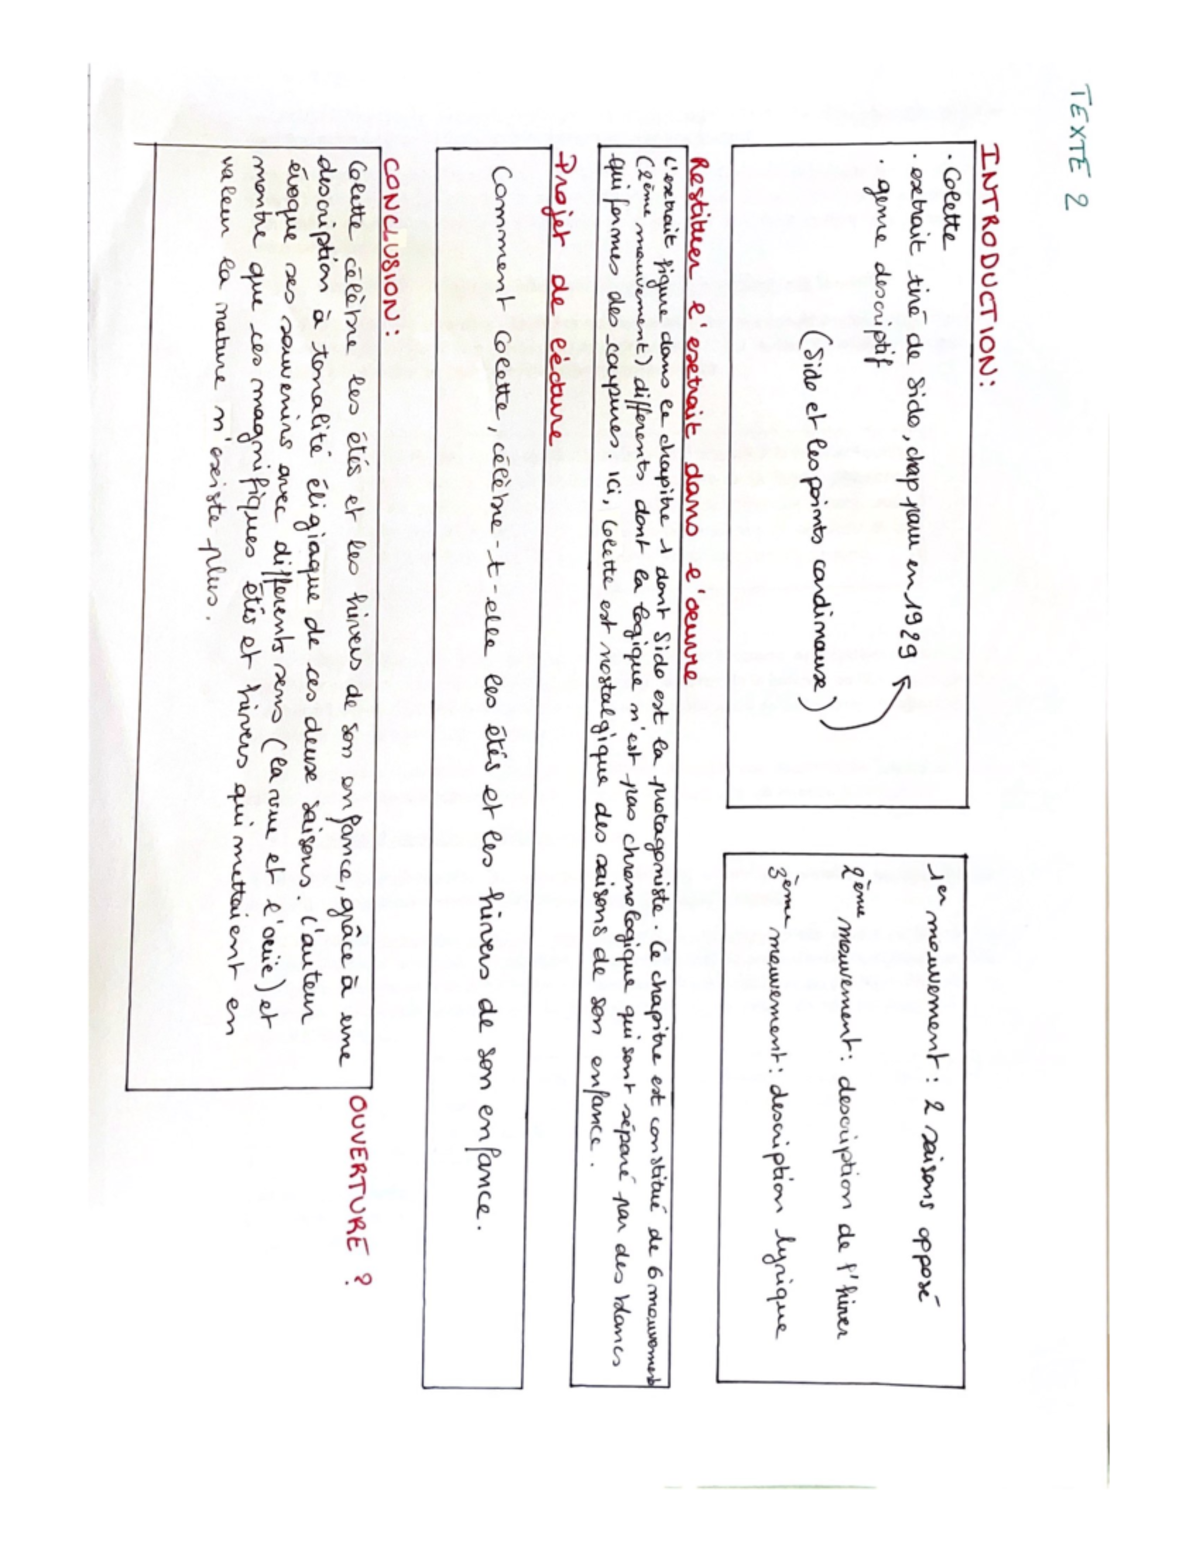 TEXTE 2
INTRODUCTION:
· Colette
· extrait tiré de Sido, chap paru en 1929
· genre descriptif
(Sido et les points cardinaux)
1er mouvement : 2 saisons opposé
2ème mouvement : description de l'hiver
3ème mouvement : description lyrique
Restituer l'extrait dans l'oeuvre
L'extrait figure dans le chapitre 1 dont Sido est la protagoniste. Ce chapitre est constitué de 6 mouvements
(2ème mouvement) différents dont la logique n'est pas chronologique qui sont séparé par des blancs
qui formes des coupures. Ici, Colette est nostalgique des saisons de son enfance.
Projet de lecture
Comment Colette, célèbre-t-elle les étés et les hivers de son enfance.
CONCLUSION:
Colette célèbre les étés et les hivers de son enfance, grâce à une
description à tonalité éligiaque de ces deux saisons. L'auteur
évoque ses souvenirs avec différents sens (la vue et l'ouïe) et
montre que ces magnifiques étés et hivers qui mettaient en
valeur la nature n'existe plus.
OUVERTURE ?